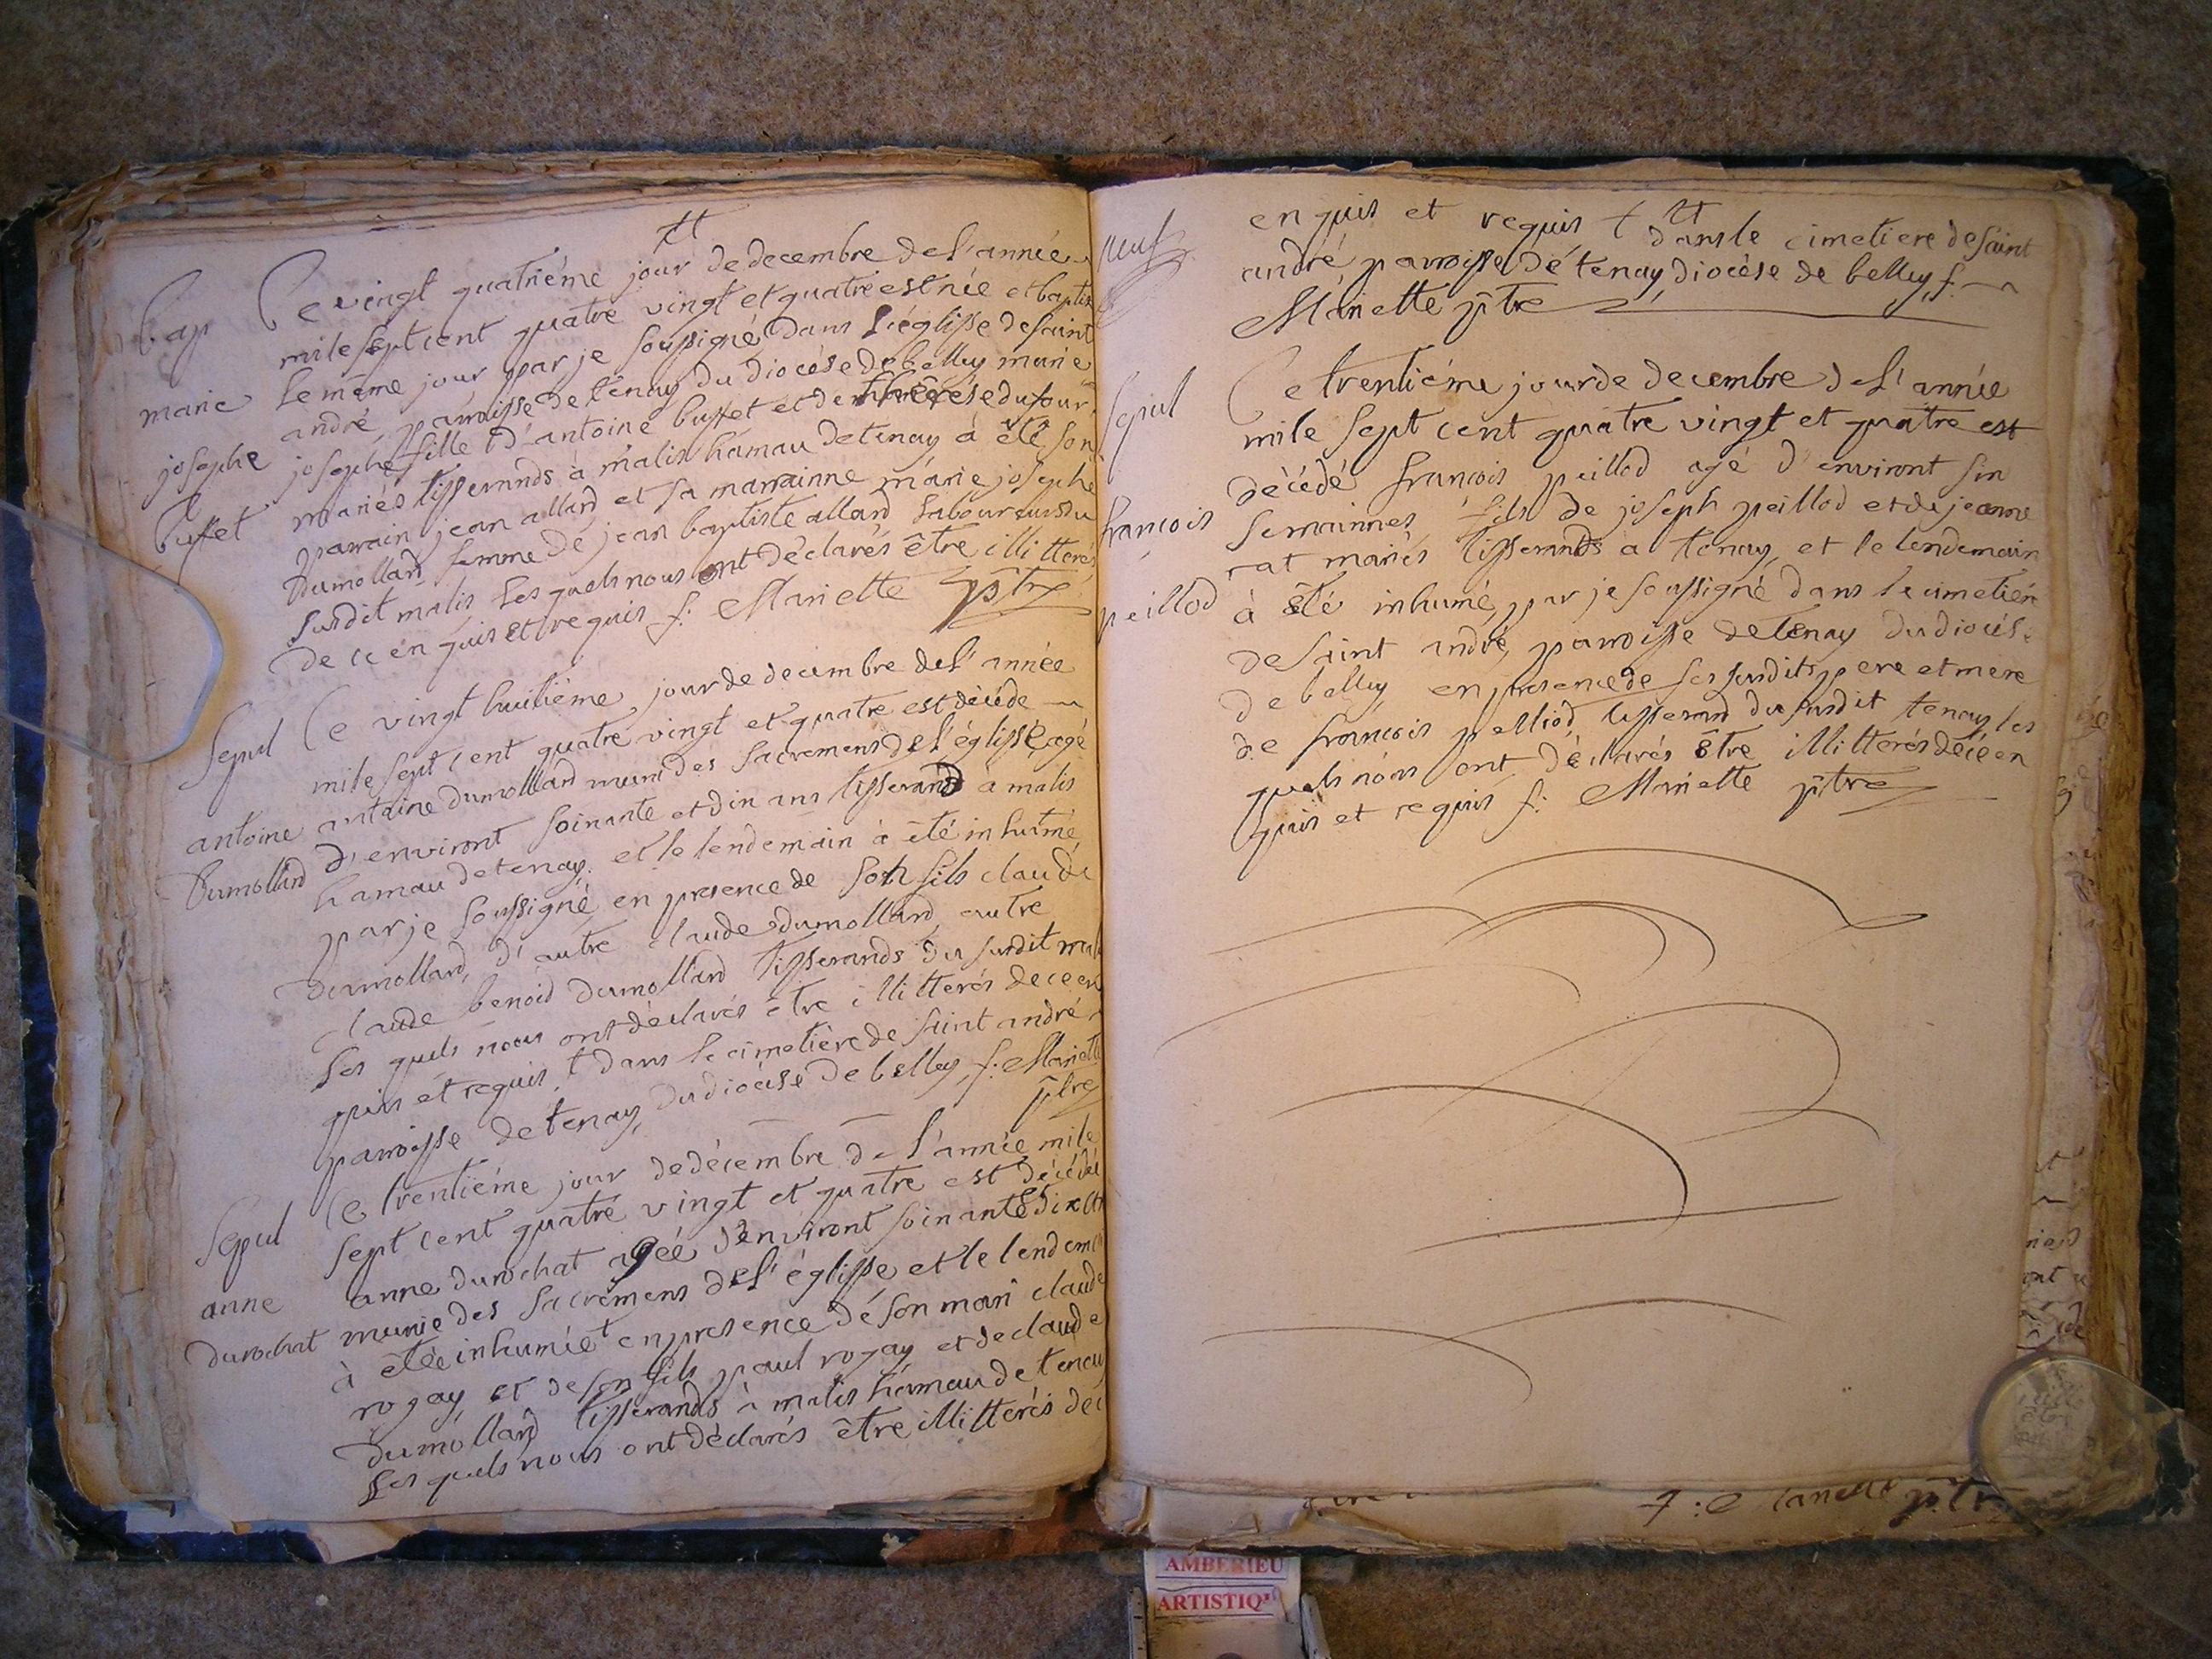 tt
Bap Ce vingt quatriéme jour de decembre de l'année
mile sept cent quatre vingt et quatre est née et baptis
le même jour par je soussigné dans l'églisse de saint
marie andré, parroisse de tenay du diocése de belley marie
josephe josephe fille d'antoine buffet et de therese dufour
buffet mariés tisserands à malis hamau de tenay à êté son
parrain jean allard et sa marrainne marie josephe
Dumollard femme de jean baptiste allard laboureurs du
susdit malis les quels nous ont déclarés être illitterés
de ce en quis et requis f: Mariette ptre
Sepul Ce vingt huitiéme jour de decembre de l'année
mile sept cent quatre vingt et quatre est décédé
antoine antoine dumollard muni des sacremens de l'églisse, agé
Dumollard d'environt soinante et din ans tisserand à malis
hamau de tenay, et le lendemain à êté inhumé
par je soussigné en presence de son fils claude
dumollard, d'autre claude dumollard, autre
claude benoid dumollard tisserands du susdit mali
les quels nous ont déclarés être illitterés de ce en
quis et requis, t dans le cimetière de saint andré
parroisse de tenay, du diocèse de belley, f: Mariette
ptre
Sepul Ce trentiéme jour de décembre de l'année mile
sept cent quatre vingt et quatre est décédée
anne anne durochat agée d'environt soinante dix
durochat munie des sacremens de l'églisse et le lendem
à êtée inhumée t en presence de son mari claude
rogay, et de son fils paul rogay, et de claude
dumollard tisserands à malis hamau de tenay
les quels nous ont déclarés être illitterés de c
en quis et requis t tt dans le cimetiere de saint
andré parroisse de tenay, diocèse de belley, f:
Mariette ptre
Sepul Ce trentiéme jour de decembre de l'année
mile sept cent quatre vingt et quatre est
décédé francois peillod agé d'environt sin
francois semainnes fils de joseph peillod et de jeanne
rat mariés tisserands a tenay, et le lendemain
peillod à êté inhumé, par je soussigné dans le cimetiér
de saint andré, parroisse de tenay du diocés
de belley en presence de ses susdits pere et mere
de francois pelliod, tisserand du susdit tenay les
quels nous ont déclarés être illitterés de ce en
quis et requis f: Mariette ptre
ptre
AMBERIEU
ARTISTIQ